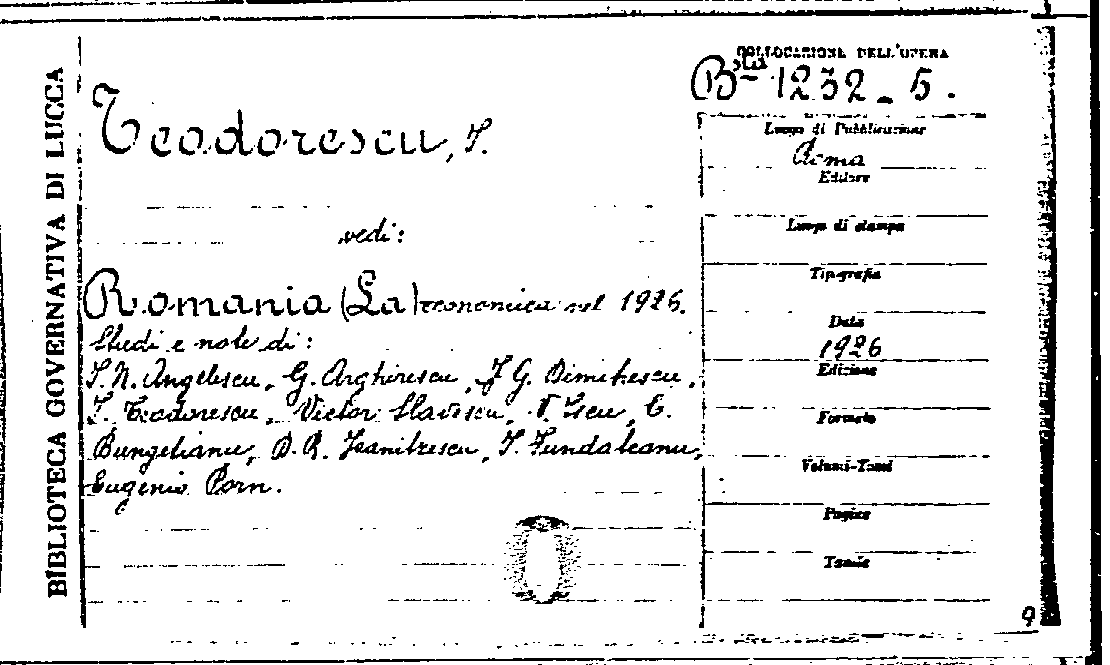 BIBLIOTECA GOVERNATIVA DI LUCCA
Teodorescu, I.
vedi:
Romania (La) economica nel 1926.
Studi e note di:
I. N. Angelescu, G. Arghirescu, I. G. Dimitrescu,
I. Teodorescu, Victor Slavescu, V. Iscu, C.
Bungetianu, D. R. Ioanitzescu, I. Fundateanu,
Eugenio Porn.
COLLOCAZIONE DELL'OPERA
Bta 1232 - 5.
Luogo di Pubblicazione
Roma
Editore
Luogo di stampa
Tipografia
Data
1926
Edizione
Formato
Volumi-Tomi
Pagine
Tavole
9